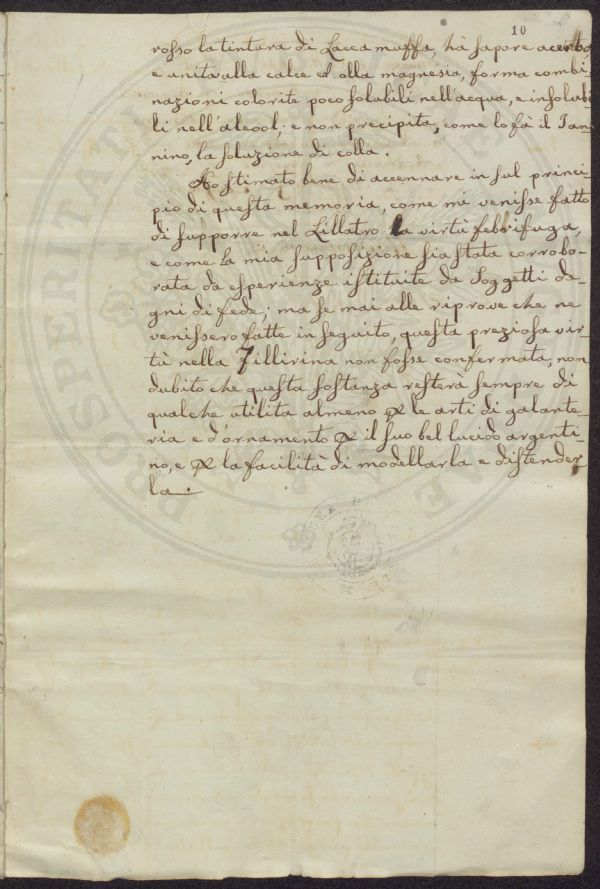 10
rosso la tintura di Lacca muffa, hà sapore acerbo
e unita alla calce ed alla magnesia, forma combi-
nazioni colorite poco solubili nell'acqua, e insolubi-
li nell'alcool; e non precipita, come lo fà il Tan-
nino, la soluzione di colla.
Ho stimato bene di accennare in sul princi-
pio di questa memoria, come mi venisse fatto
di supporre nel Lillatro la virtù febrifuga,
e come la mia supposizione sia stata corrobo-
rata da esperienze istituite da Soggetti de-
gni di fede; ma se mai alle riprove che ne
venissero fatte in seguito, questa preziosa vir-
tù nella Fillirina non fosse confermata, non
dubito che questa sostanza resterà sempre di
qualche utilita almeno p le arti di galante-
ria e d'ornamento p il suo bel lucido argenti-
no, e p la facilità di modellarla e distender-
la.
PROSPERITATI